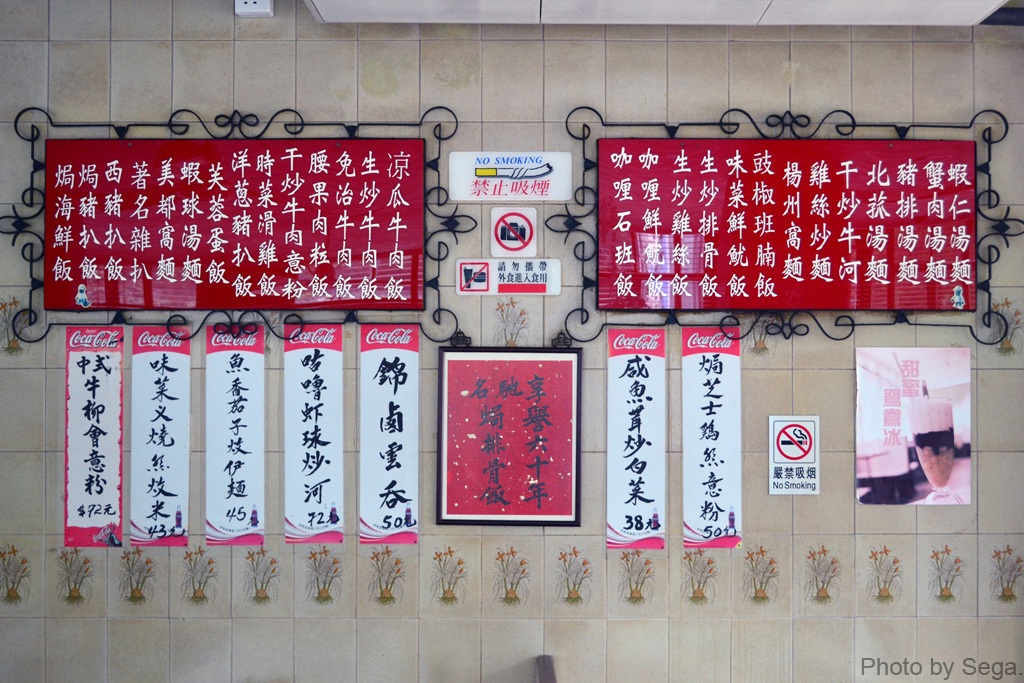 凉瓜牛肉飯
生炒牛肉飯
免治牛肉飯
腰果肉粒飯
干炒牛肉意粉
時菜滑雞飯
洋蔥豬扒飯
芙蓉蛋飯
蝦球窩麵
美都窩麵
著名雜扒
西豬扒飯
焗豬扒飯
焗海鮮飯
NO SMOKING
禁止吸煙
請勿攜帶
外食進入食用
蝦仁湯麵
蟹肉湯麵
豬排湯麵
北菰湯麵
干炒牛河
雞絲炒麵
楊州窩麵
豉椒班腩飯
味菜鮮魷飯
生炒排骨飯
生炒雞絲飯
咖喱鮮魷飯
咖喱石班飯
Coca-Cola
中式牛柳會意粉
$92元
Coca-Cola
味菜义燒熊炆米
43元
Coca-Cola
魚香茄子炆伊麵
45元
Coca-Cola
咕嚕虾球炒河
72元
Coca-Cola
錦鹵雲吞
50元
享譽六十年
馳名
焗排骨飯
Coca-Cola
咸魚茸炒白菜
38元
Coca-Cola
焗芝士鷄絲意粉
50元
嚴禁吸烟
No Smoking
甜蜜
鴛鴦冰
Photo by Sega.